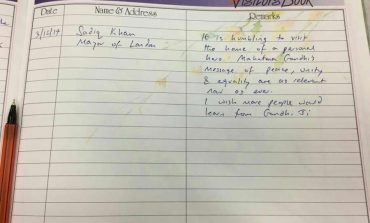 Visitors Book
Date Name & Address Remarks
3/12/17 Sadiq Khan It is humbling to visit
Mayor of London the home of a personal
hero. Mahatma Gandhi's
message of peace, unity
& equality are as relevant
now as ever.
I wish more people would
learn from Gandhi Ji